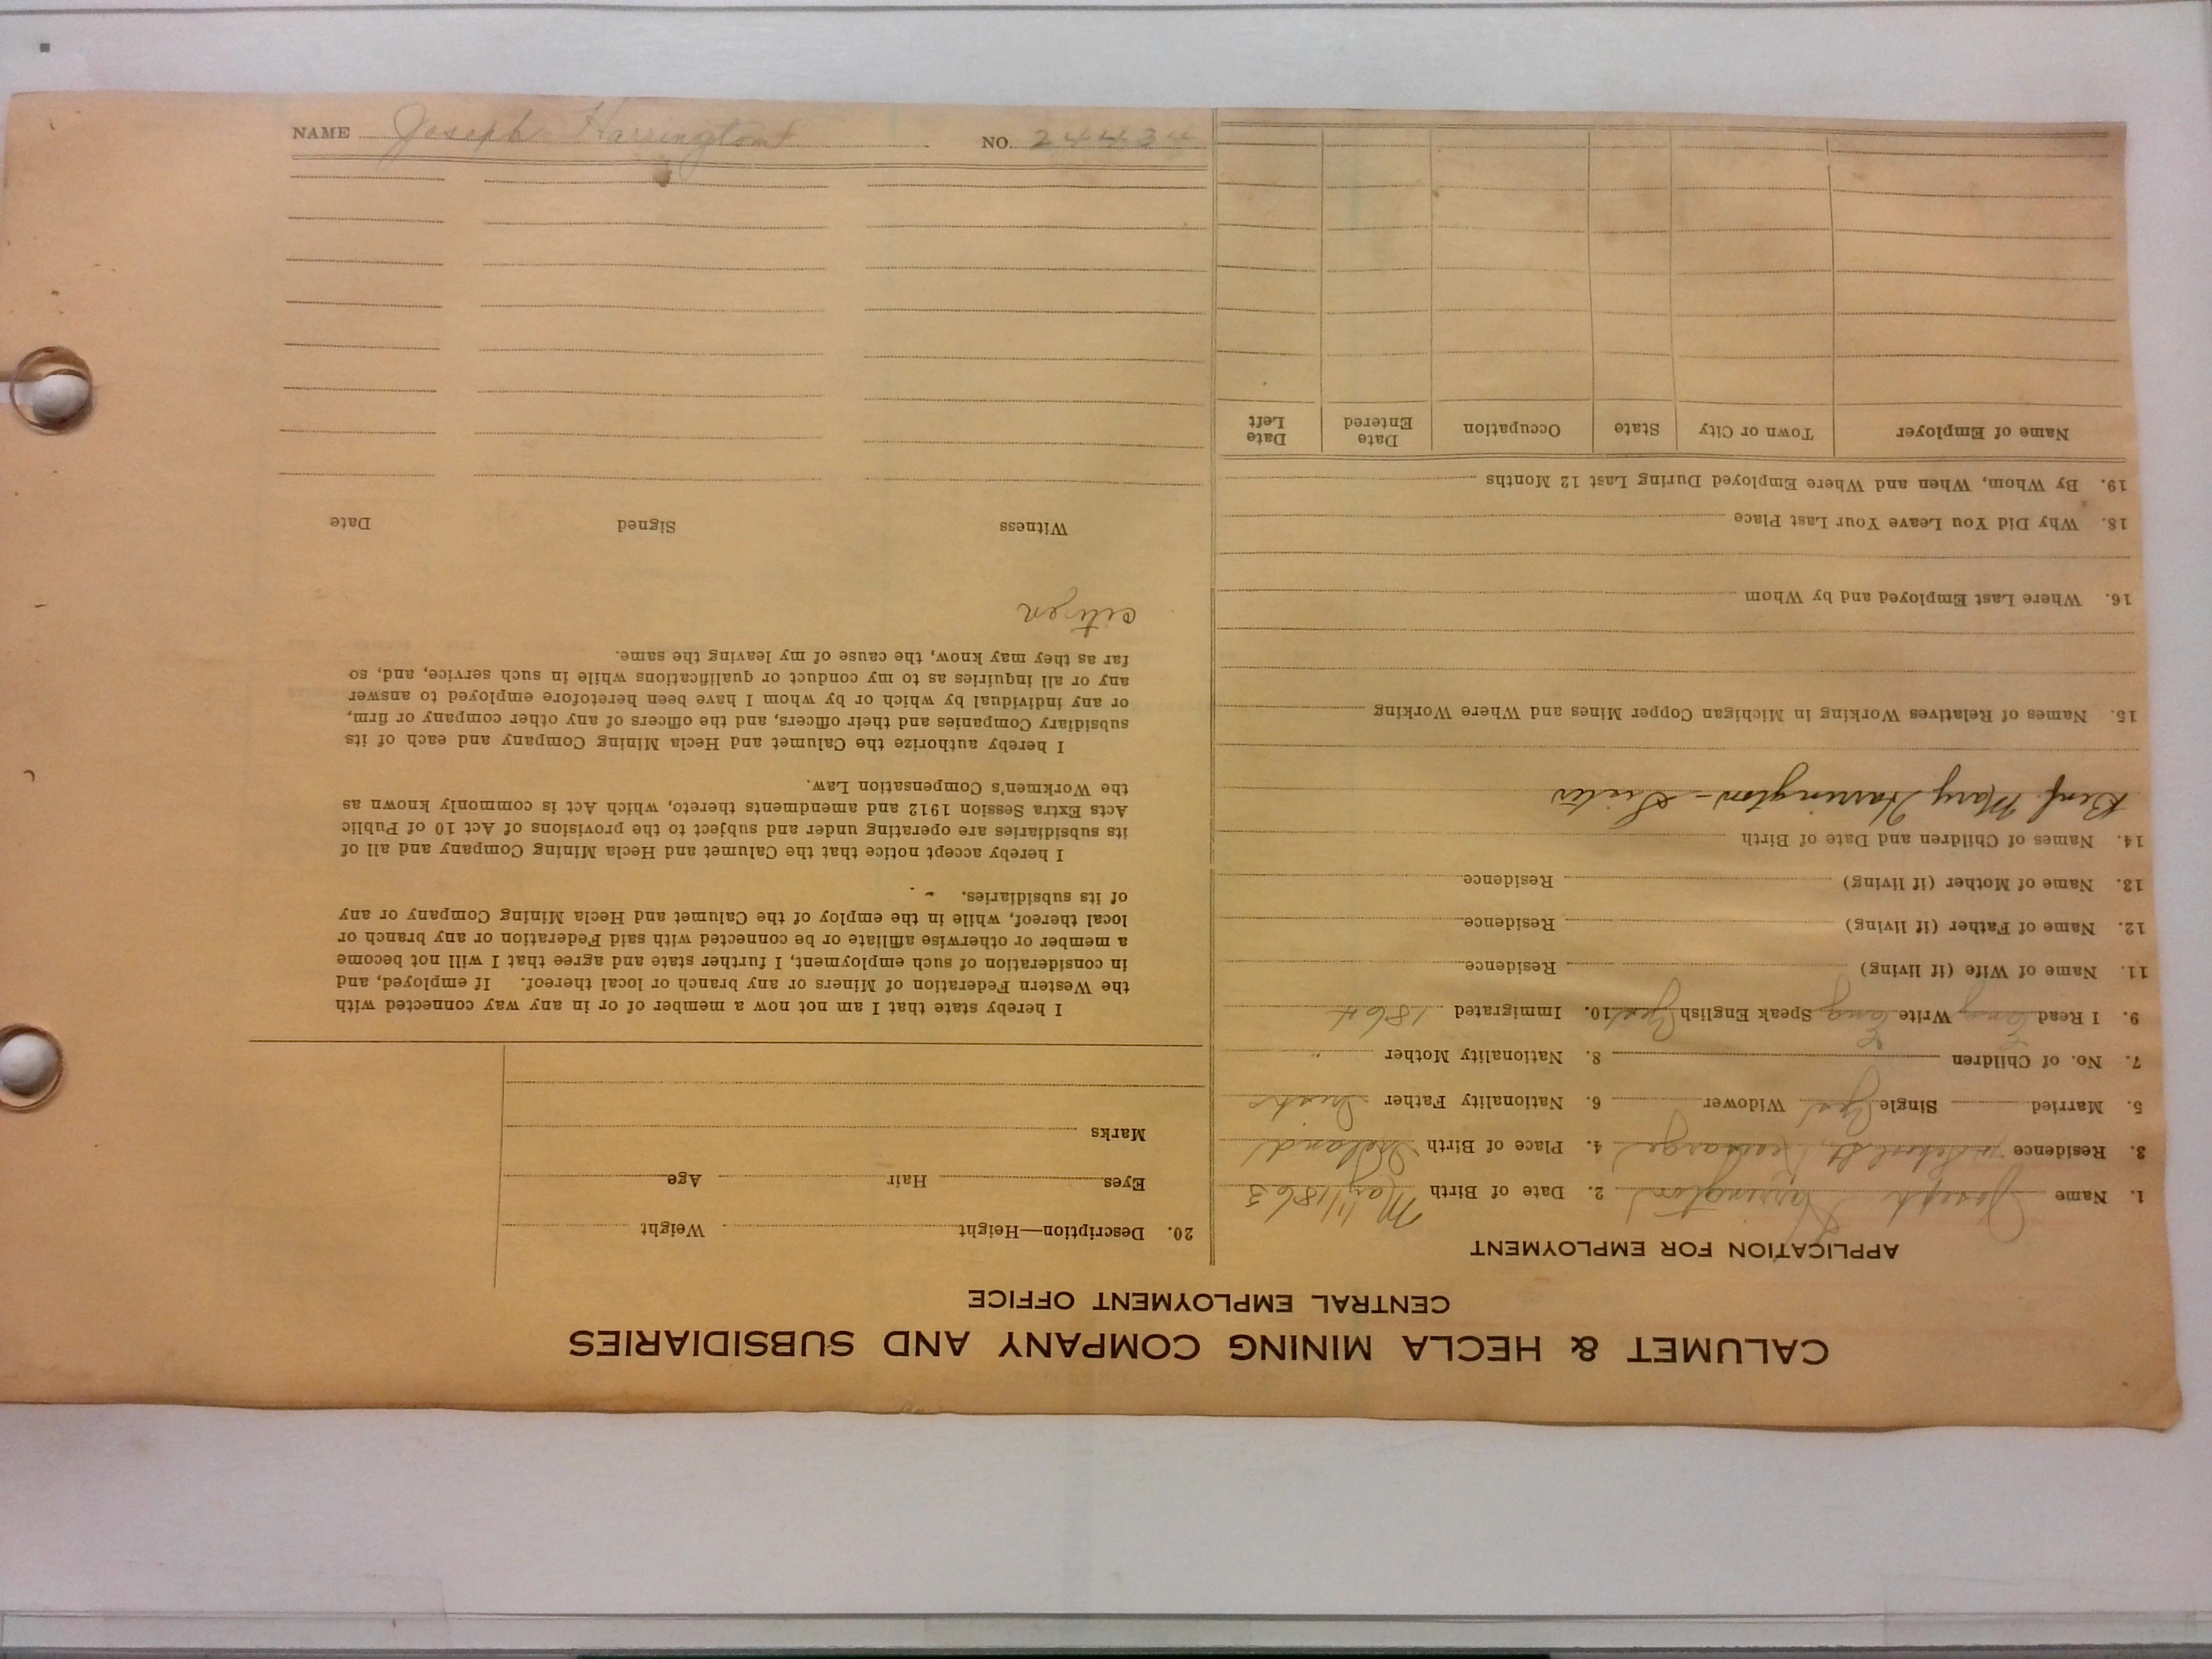 CALUMET & HECLA MINING COMPANY AND SUBSIDIARIES
CENTRAL EMPLOYMENT OFFICE
APPLICATION FOR EMPLOYMENT
1. Name Joseph Harrington 2. Date of Birth May 1863
3. Residence School St. 4. Place of Birth Ireland
5. Married Single Yes Widower 6. Nationality Father Irish
7. No. of Children 8. Nationality Mother "
9. I Read Eng Write Eng Speak English Yes 10. Immigrated 1864
11. Name of Wife (if living) Residence
12. Name of Father (if living) Residence
13. Name of Mother (if living) Residence
14. Names of Children and Date of Birth
Benf. Mary Harrington - Sister
15. Names of Relatives Working in Michigan Copper Mines and Where Working
16. Where Last Employed and by Whom
18. Why Did You Leave Your Last Place
19. By Whom, When and Where Employed During Last 12 Months
Name of Employer Town or City State Occupation Date Entered Date Left
20. Description—Height Weight
Eyes Hair Age
Marks
I hereby state that I am not now a member of or in any way connected with
the Western Federation of Miners or any branch or local thereof. If employed, and
in consideration of such employment, I further state and agree that I will not become
a member or otherwise affiliate or be connected with said Federation or any branch or
local thereof, while in the employ of the Calumet and Hecla Mining Company or any
of its subsidiaries.
I hereby accept notice that the Calumet and Hecla Mining Company and all of
its subsidiaries are operating under and subject to the provisions of Act 10 of Public
Acts Extra Session 1912 and amendments thereto, which Act is commonly known as
the Workmen's Compensation Law.
I hereby authorize the Calumet and Hecla Mining Company and each of its
subsidiary Companies and their officers, and the officers of any other company or firm,
or any individual by which or by whom I have been heretofore employed to answer
any or all inquiries as to my conduct or qualifications while in such service, and, so
far as they may know, the cause of my leaving the same.
citizen
Witness Signed Date
NAME Joseph Harrington NO. 24434